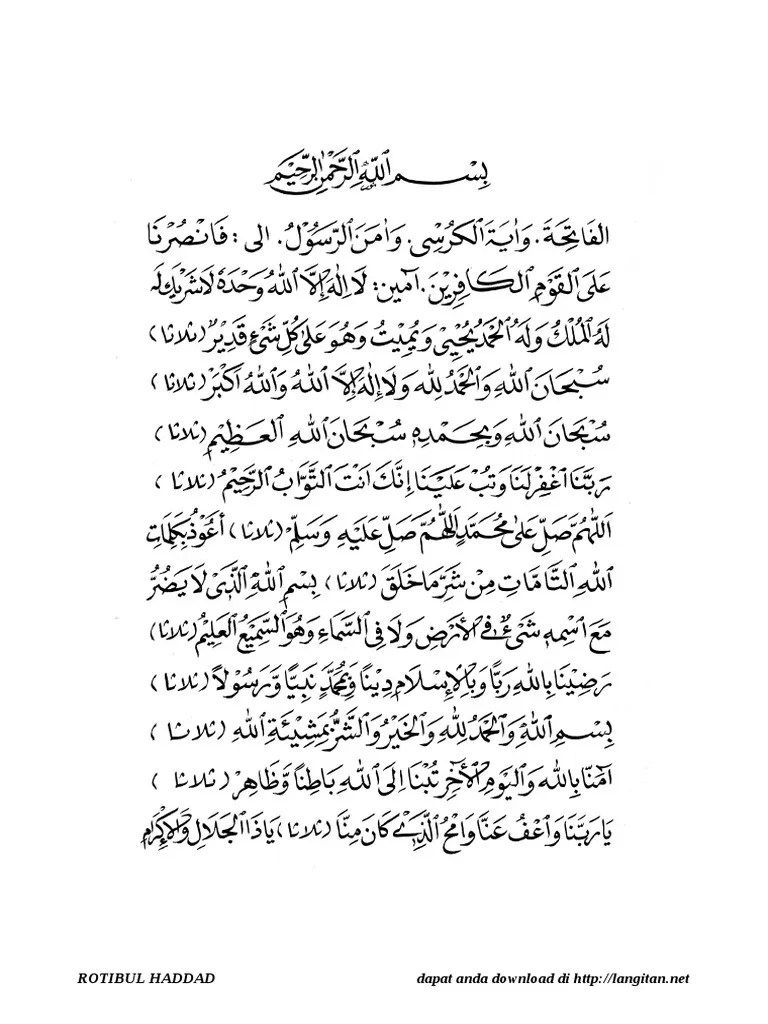 بِسْمِ اللهِ الرَّحْمٰنِ الرَّحِيْمِ
الفَاتِحَةَ. وَاٰيَةَ الْكُرْسِى. وَاٰمَنَ الرَّسُوْلُ. الى : فَانْصُرْنَا
عَلَى الْقَوْمِ الْكَافِرِيْنَ. آمين: لَا اِلٰهَ اِلَّا اللهُ وَحْدَهُ لَا شَرِيْكَ لَهُ
لَهُ الْمُلْكُ وَلَهُ الْحَمْدُ يُحْيِىْ وَيُمِيْتُ وَهُوَ عَلٰى كُلِّ شَىْءٍ قَدِيْرٌ (ثلاثا)
سُبْحَانَ اللهِ وَالْحَمْدُ لِلهِ وَلَا اِلٰهَ اِلَّا اللهُ وَاللهُ اَكْبَرُ (ثلاثا)
سُبْحَانَ اللهِ وَبِحَمْدِهِ سُبْحَانَ اللهِ الْعَظِيْمِ (ثلاثا)
رَبَّنَا اغْفِرْ لَنَا وَتُبْ عَلَيْنَا اِنَّكَ اَنْتَ التَّوَّابُ الرَّحِيْمُ (ثلاثا)
اَللّٰهُمَّ صَلِّ عَلٰى مُحَمَّدٍ اَللّٰهُمَّ صَلِّ عَلَيْهِ وَسَلِّمْ (ثلاثا) أَعُوْذُ بِكَلِمَاتِ
اللهِ التَّامَّاتِ مِنْ شَرِّ مَا خَلَقَ (ثلاثا) بِسْمِ اللهِ الَّذِىْ لَا يَضُرُّ
مَعَ اسْمِهِ شَىْءٌ فِى الْاَرْضِ وَلَا فِى السَّمَاءِ وَهُوَ السَّمِيْعُ الْعَلِيْمُ (ثلاثا)
رَضِيْنَا بِاللهِ رَبًّا وَبِالْاِسْلَامِ دِيْنًا وَبِمُحَمَّدٍ نَبِيًّا وَّرَسُوْلًا (ثلاثا)
بِسْمِ اللهِ وَالْحَمْدُ لِلهِ وَالْخَيْرُ وَالشَّرُّ بِمَشِيْئَةِ اللهِ (ثلاثا)
اٰمَنَّا بِاللهِ وَالْيَوْمِ الْاٰخِرِ تُبْنَا اِلَى اللهِ بَاطِنًا وَّظَاهِرْ (ثلاثا)
يَا رَبَّنَا وَاعْفُ عَنَّا وَامْحُ الَّذِىْ كَانَ مِنَّا (ثلاثا) يَاذَا الْجَلَالِ وَالْاِكْرَامِ
ROTIBUL HADDAD dapat anda download di http://langitan.net